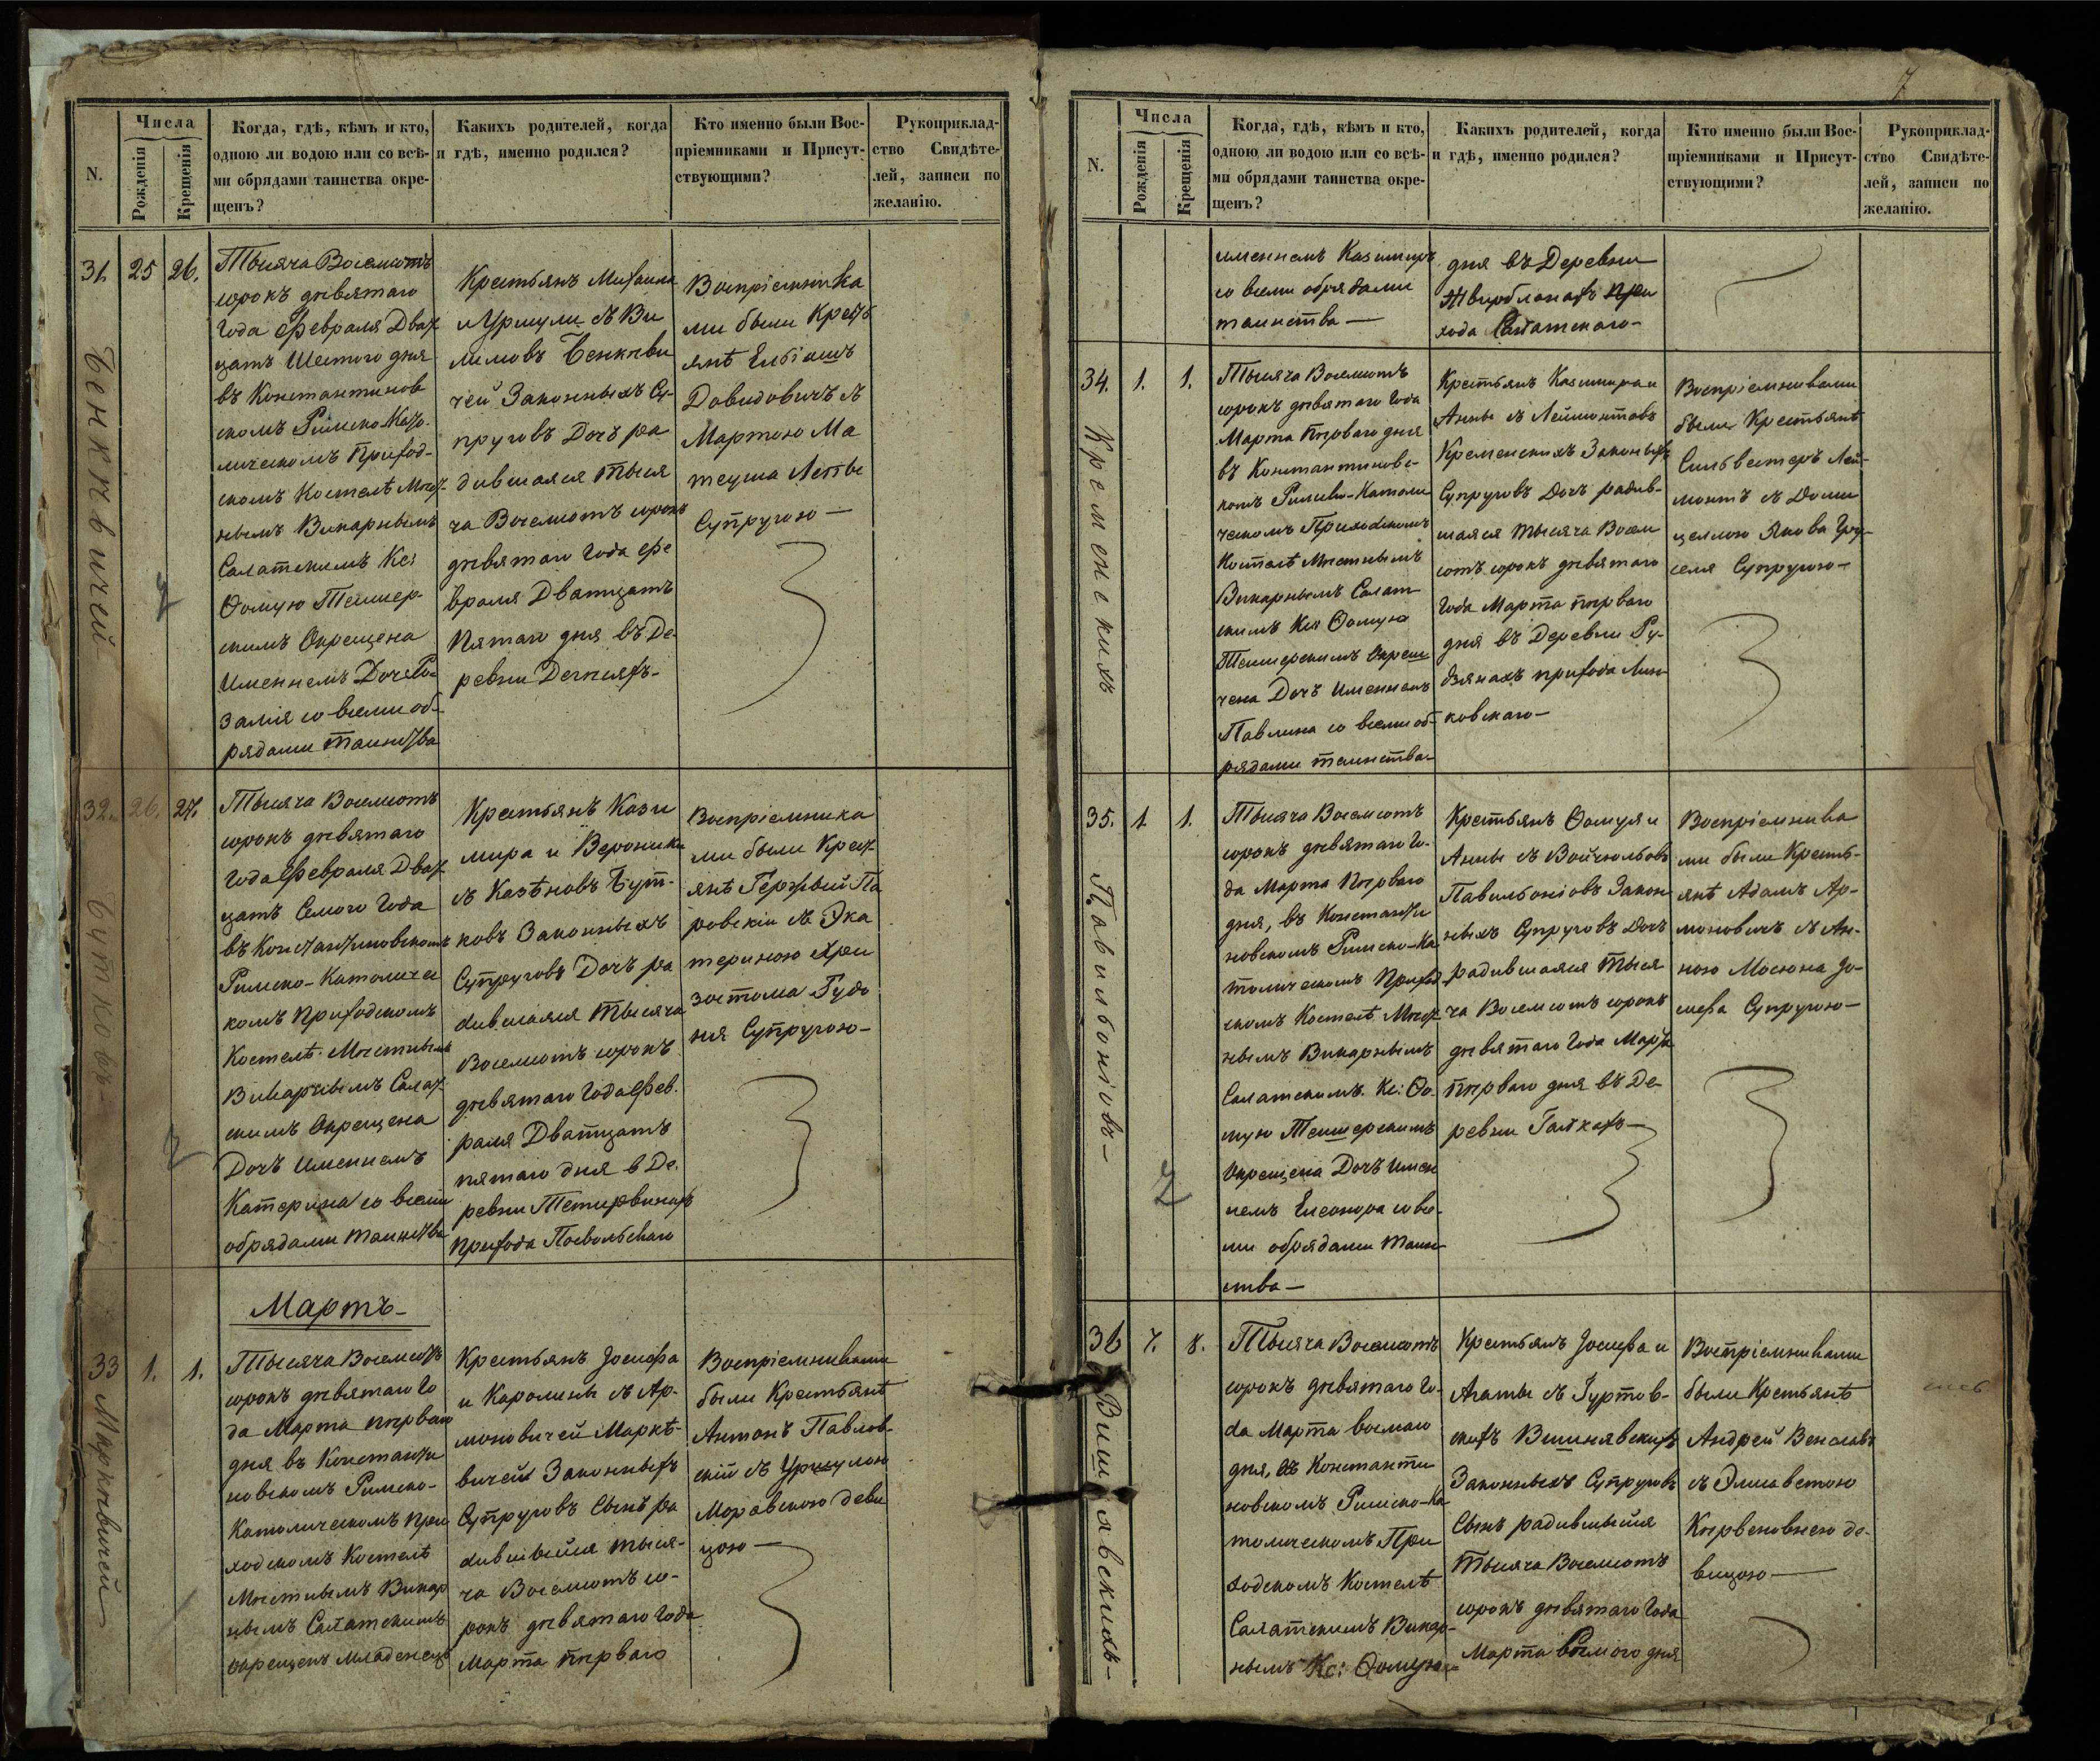 Числа
N.
Рожденія
Крещенія
Когда, гдѣ, кѣмъ и кто,
одною ли водою или со всѣ-
ми обрядами таинства окре-
щенъ?
Какихъ родителей, когда
и гдѣ, именно родился?
Кто именно были Вос-
пріемниками и Присут-
ствующими?
Рукоприклад-
ство Свидѣте-
лей, записи по
желанію.
31. 25 26.
Бенкѣвичей
Тысяча Восемьсотъ
сорокъ девятаго
Года Февраля Дват
цать Шестого дня
въ Константинов
скомъ Римско-Като-
лическомъ Приход-
скомъ Костелѣ Мѣст
нымъ Викарнымъ
Салатскимъ Кс:
Ѳомую
скимъ Окрещена
Именнемъ Дочь Ро-
залія со всеми об-
рядами таинства
Крестьянъ Михаила
и Уршули съ Ви
лимовъ Бенкѣви
чей Законныхъ Су-
пруговъ Дочь ра
дившаяся тыся
ча Восемсотъ сорокъ
девятаго Года Фе
враля Дватцать
Пятаго дня въ Де
ревни
Воспріемника
ми были Крест
янѣ
Давидовичъ съ
Мартою Ма
теуша
Супругою—
32. 26. 27.
Бутковъ-
Тысяча Восемсотъ
сорокъ девятаго
Года Февраля Дват
цать Семого Года
въ Константиновскомъ
Римско-Католичес
комъ Приходскомъ
Костелѣ Мѣстнымъ
Викарнымъ Салат
скимъ Окрещена
Дочь Именнемъ
Катерина со всеми
обрядами таинства
Крестьянъ Кази
мира и Вероники
съ Казѣновъ Бут-
ковъ Законныхъ
Супруговъ Дочь ра
дившаяся тысяча
Восемсотъ сорокъ
девятаго Года Фев.
раля Дватцать
пятаго дня в Де.
ревни
Прихода Посвольскаго
Воспріемника
ми были Крест
янѣ
ровскій съ Эка
териною Хри
зостома Гудо
ня Супругою—
Мартъ-
33 1. 1.
Маркѣвичей
Тысяча Восемсотъ
сорокъ девятаго Го
да Марта перваго
дня въ Константи
новскомъ Римско-
Католическомъ При
ходскомъ Костелѣ
Мѣстнымъ Викар
нымъ Салатскимъ
окрещенъ Младенецъ
Крестьянъ Іосифа
и Каролины съ Ар-
моновичей Маркѣ-
вичей Законныхъ
Супруговъ Сынъ ра
дившыйся тыся-
ча Восемсотъ со-
рокъ девятаго Года
Марта перваго
Воспріемниками
были Крестьянѣ
Антонъ Павлов-
скій съ Уршулою
Моравскою деви
цою—
7
Числа
N.
Рожденія
Крещенія
Когда, гдѣ, кѣмъ и кто,
одною ли водою или со всѣ-
ми обрядами таинства окре-
щенъ?
Какихъ родителей, когда
и гдѣ, именно родился?
Кто именно были Вос-
пріемниками и Присут-
ствующими?
Рукоприклад-
ство Свидѣте-
лей, записи по
желанію.
именнемъ Казимиръ
со всеми обрядами
таинства—
дня въ Деревни
Жвирбланахъ при
хода Салатскаго-
34. 1. 1.
Кременскихъ
Тысяча Восемсотъ
сорокъ девятаго Года
Марта Перваго дня
въ Константиновс-
комъ Римско-Католи
ческомъ Приходскомъ
Костелѣ Мѣстнымъ
Викарнымъ Салат
скимъ Кся Ѳомую
Окреш
чена Дочь Именнемъ
Павлина со всеми об-
рядами таинства-
Крестьянъ Казимира и
Анны съ Леймонтовъ
Кременскихъ Законныхъ
Супруговъ Дочь радив-
шаяся тысяча Восем
сотъ сорокъ девятаго
Года Марта перваго
дня въ Деревни Ру-
дзянахъ прихода Лин
ковскаго—
Воспріемниками
были Крестьянѣ
Сильвестеръ Лей-
монтъ съ Доми
целлою Якова
Супругою—
35. 1 1.
Павильоніовъ-
Тысяча Восемсотъ
сорокъ девятаго Го-
да Марта Перваго
дня, въ Константи
новскомъ Римско-Ка
толическомъ Приход
скомъ Костелѣ Мѣст
нымъ Викарнымъ
Салатскимъ. Кс: Ѳо-
мую
Окрещена Дочь Имен
немъ Елеонора со все-
ми обрядами Таин-
ства—
Крестьянъ Ѳомуя и
Анны съ
Павильоніовъ Закон
ныхъ Супруговъ Дочь
радившаяся тыся
ча Восемсотъ сорокъ
девятаго Года Марта
Перваго дня въ Де-
ревни
Воспріемника
ми были Кресть-
янѣ Адамъ Ар-
моновичъ съ Ан-
ною Мосюна Іо-
сифа Супругою—
36 7. 8.
Вишнявскихъ-
Тысяча Восемсотъ
сорокъ девятаго Го-
да Марта восмаго
дня, въ Константи
новскомъ Римско-Ка
толическомъ При
ходскомъ Костелѣ
Салатскимъ Викар-
нымъ Кс: Ѳомую
Крестьянъ Іосифа и
Агаты съ Гуртов-
скихъ Вишнявскихъ
Законныхъ Супруговъ
Сынъ радившыйся
Тысяча Восемсотъ
сорокъ девятаго Года
Марта дня
Воспріемниками
были Крестьянѣ
Андрей Венславъ
съ Элисаветою
де-
вицою—